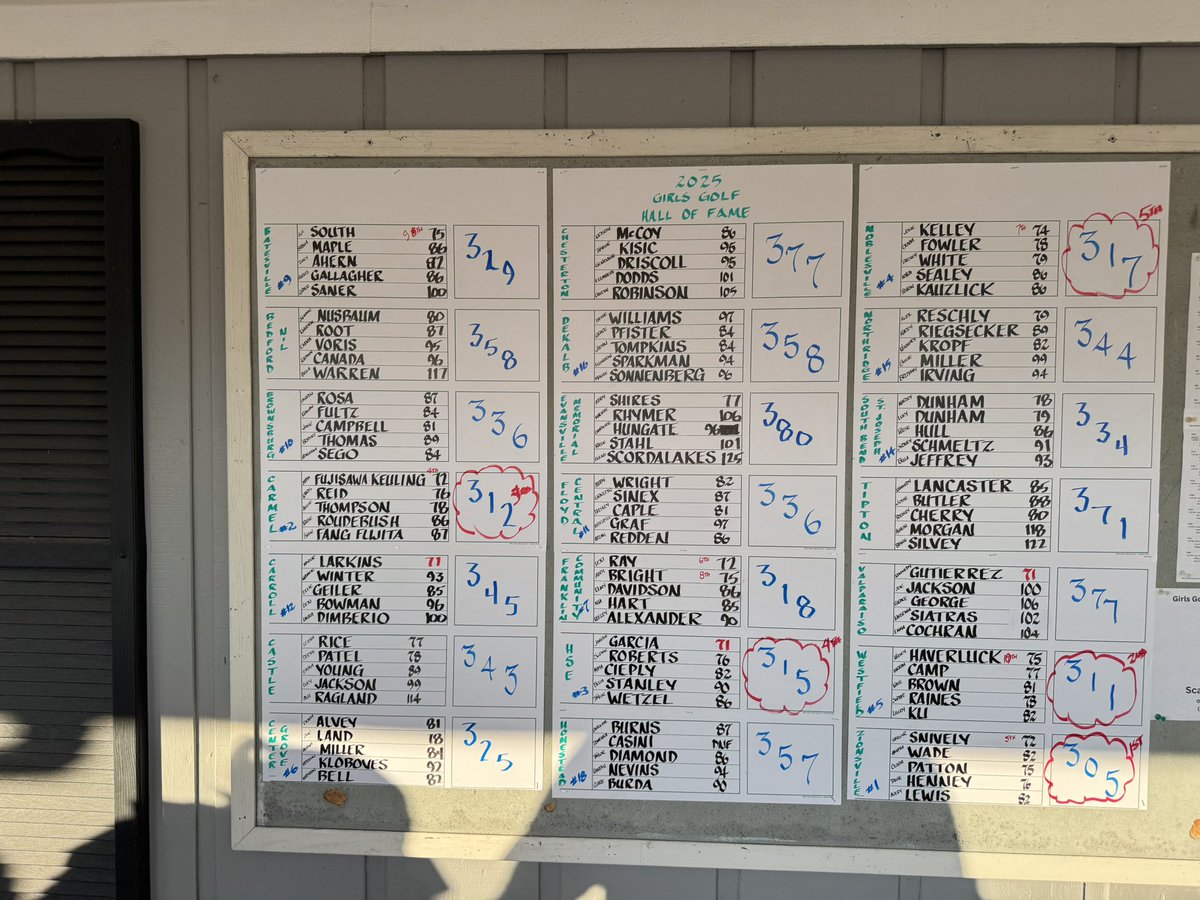 2025
GIRLS GOLF
HALL OF FAME
BATESVILLE #9
SOUTH 75
MAPLE 86
AHERN 82
GALLAGHER 86
SANER 100
329
BEDFORD
NUSBAUM 80
ROOT 87
VORIS 95
CANADA 96
WARREN 117
358
BROWNSBURG #10
ROSA 87
FULTZ 84
CAMPBELL 81
THOMAS 89
SEGO 84
336
CARMEL #2
FUJISAWA KEULING 72
REID 76
THOMPSON 78
ROUDEBUSH 86
FANG FUJITA 87
312
CARROLL #12
LARKINS 71
WINTER 93
GEILER 85
BOWMAN 96
DIMBERIO 100
345
CASTLE
RICE 77
PATEL 78
YOUNG 89
JACKSON 99
RAGLAND 114
343
CENTER GROVE #6
ALVEY 81
LAND 78
MILLER 84
KLOBOVES 92
BELL 82
325
CHESTERTON
McCOY 86
KISIC 95
DRISCOLL 95
DODDS 101
ROBINSON 105
377
DEKALB #16
WILLIAMS 97
PFISTER 84
TOMPKINS 84
SPARKMAN 94
SONNENBERG 96
358
EVANSVILLE MEMORIAL
SHIRES 77
RHYMER 106
HUNGATE 96
STAHL 101
SCORDALAKES 125
380
FLOYD CENTRAL #11
WRIGHT 82
SINEX 87
CAPLE 81
GRAF 97
REDDEN 86
336
FRANKLIN COMMUNITY #7
RAY 6TH 72
BRIGHT 8TH 75
DAVIDSON 86
HART 85
ALEXANDER 90
318
HSE #3
GARCIA 71
ROBERTS 76
CIEPLY 82
STANLEY 90
WETZEL 86
315
HOMESTEAD #18
BURNS 87
CASINI DNF
DIAMOND 86
NEVINS 94
BURDA 90
357
NOBLESVILLE #4
KELLEY 7TH 74
FOWLER 78
WHITE 79
SEALEY 86
KAUZLICK 86
317 5TH
NORTHRIDGE #15
RESCHLY 79
RIEGSECKER 89
KROPF 82
MILLER 99
IRVING 94
344
SOUTH BEND ST. JOSEPH #14
DUNHAM 78
DUNHAM 79
HULL 86
SCHMELTZ 91
JEFFREY 93
334
TIPTON
LANCASTER 85
BUTLER 88
CHERRY 80
MORGAN 118
SILVEY 122
371
VALPARAISO
GUTIERREZ 71
JACKSON 100
GEORGE 106
SIATRAS 102
COCHRAN 104
377
WESTFIELD #5
HAVERLUCK 10TH 75
CAMP 77
BROWN 81
RAINES 78
KU 82
311 2ND
ZIONSVILLE #1
SNIVELY 5TH 72
WADE 82
PATTON 75
HENNEY 76
LEWIS 82
305 1ST